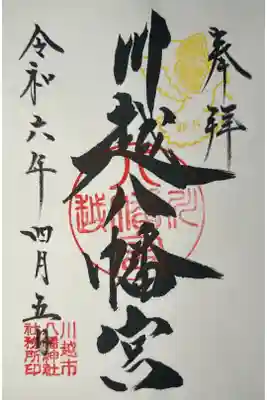 奉拝
川越八幡宮
令和六年四月五日
川越市
八幡神社
社務所印